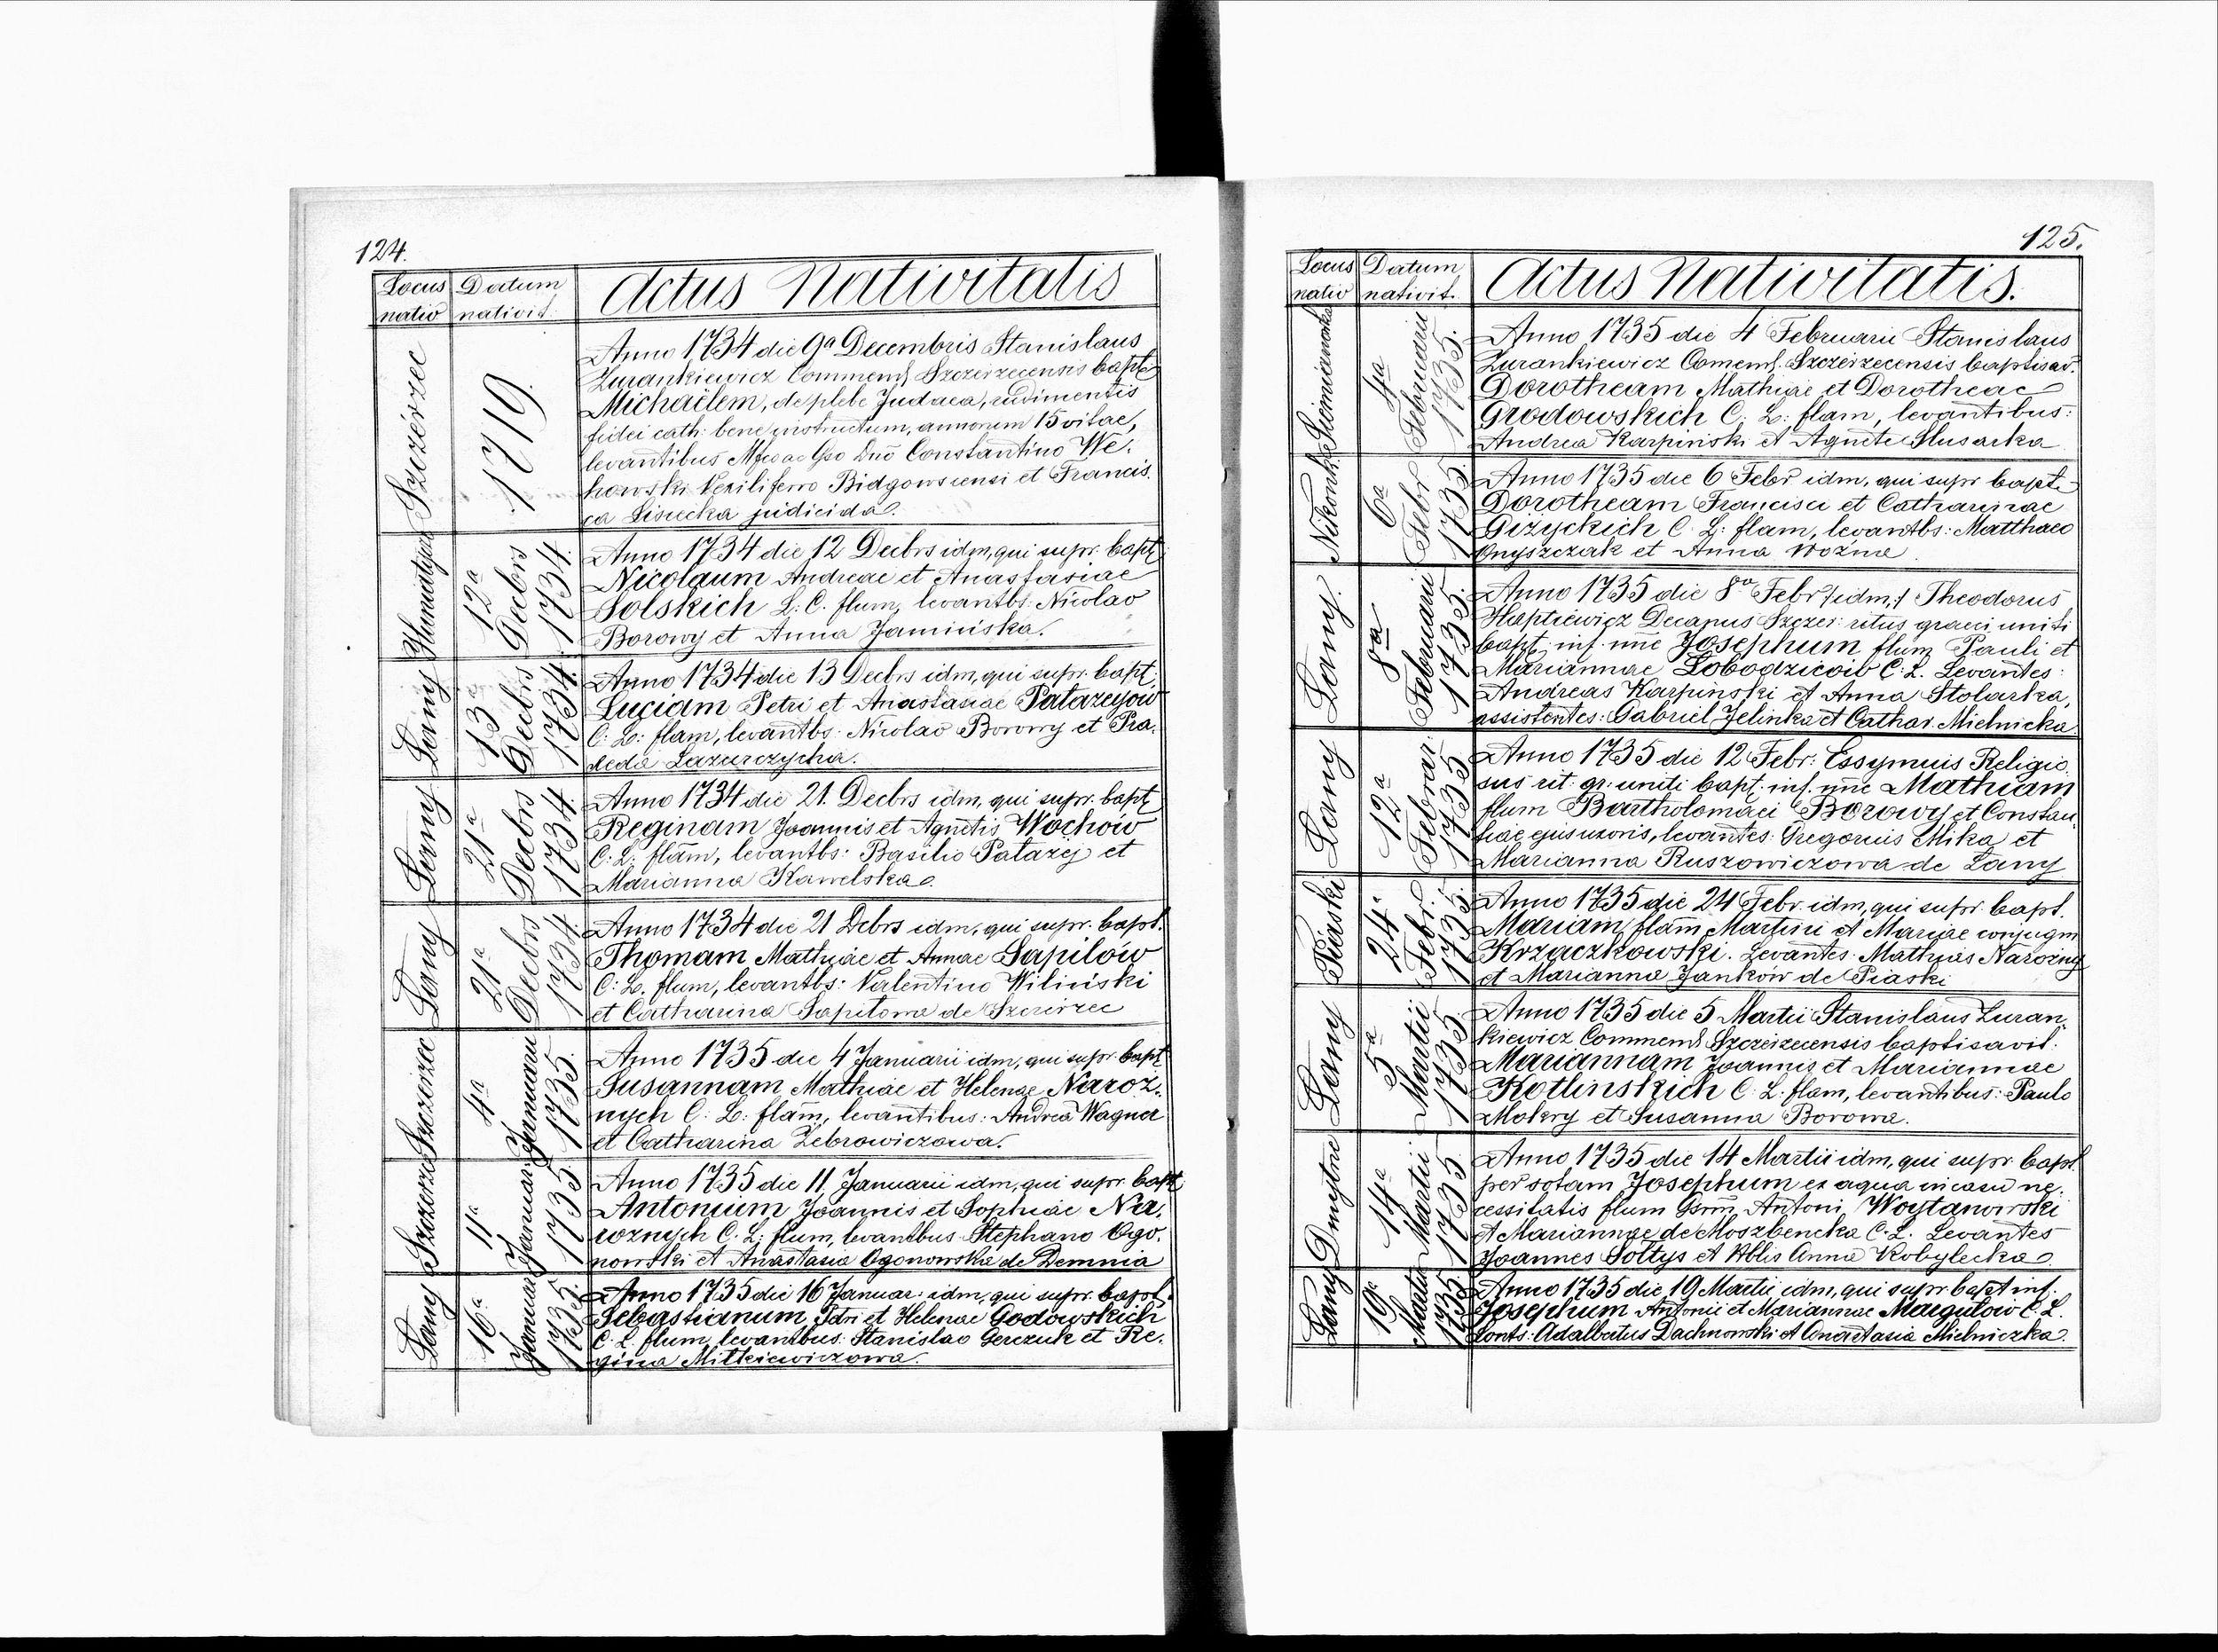 124.
Locus
nativ
Datum
nativit.
Actus Nativitatis
Szczérzec
1719.
Anno 1734 die 9a Decembris Stanislaus
Zurankiewicz Commend Szczerzecensis bapt
Michaelem, de plebe Judaea, rudimentis
fidei cath: bene instructum, annorum 15 vitae,
levantibus Mfco ac Gso Dno Constantino We-
howski Vexilifero Bidgowsiensi et Francis.
ca Lisiecka judicida.
12a
Decbrs
1734.
Anno 1734 die 12 Decbrs idm, qui supr. bapt
Nicolaum Andreae et Anastasiae
Solskich L: C. flum, levantbs: Nicolao
Borowy et Anna Jamińska.
Łany
13a
Decbrs
1734.
Anno 1734 die 13 Decbrs idm, qui supr. bapt
Luciam Petri et Anastasiae Patazeyów
C: L: flam, levantbs: Nicolao Borowy et Pra-
xeda Lazurczycha.
Łany
21a
Decbrs
1734.
Anno 1734 die 21. Decbrs idm, qui supr. bapt
Reginam Joannis et Agnetis Wochów
C: L: flam, levantbs: Basilio Patazej et
Marianna Kawelska.
Łany
21a
Decbrs
1734
Anno 1734 die 21 Debrs idm, qui supr. bapt.
Thomam Mathiae et Annae Sapilów
C: L. flum, levantbs: Valentino Wiliński
et Catharina Sapitowa de Szczérzec
Szczérzec
4a
Januarii
1735.
Anno 1735 die 4 Januarii idm, qui supr. bapt
Susannam Mathiae et Helenae Naroż-
nych C: L: flam, levantibus: Andrea Wagner
et Catharina Żebrowiczowa.
Szczerzec
11a
Januar:
1735
Anno 1735 die 11 Januarii idm, qui supr. bapt
Antonium Joannis et Sophiae Na-
rożnych C. L: flum, levantbus Stephano Ogo-
nowski et Anastasia Ogonowska de Demnia
Łany
16a
Januar
1735.
Anno 1735 die 16 Januar: idm, qui supr. bapt.
Sebastianum Petri et Helenae Godowskich
C. L. flum, levantbus: Stanislao Gerczuk et Re-
gina Mitkiewiczowa.
125.
Locus
nativ
Datum
nativit.
Actus Nativitatis.
Siemianowka
4a
Februarii
1735.
Anno 1735 die 4 Februarii Stanislaus
Zurankiewicz Comend. Szczerzecensis baptisav.
Dorotheam Mathiae et Dorotheae
Grodowskich C. L: flam, levantibus:
Andrea Karpiński et Agnete Slusarka
Nikonk.
6a
Febr
1735.
Anno 1735 die 6 Febr idm, qui supr bapt
Dorotheam Francisci et Catharinae
Gizyckich C. L: flam, levantbs: Matthaeo
Onyszczak et Anna Wozna.
Łany.
8a
Februarii
1735.
Anno 1735 die 8a Febr /:idm,:/ Theodorus
Haptiewicz Decanus Szczer: ritus graeci uniti
bapt. inf. nne Josephum flum Pauli et
Mariannae Lobodziców C: L. Levantes:
Andreas Karpinski et Anna Stolarka,
assistentes: Gabriel Jelinka et Cathar. Mielnicka
Łany
12a
Februar:
1735
Anno 1735 die 12 Febr: Essymuis Religio-
sus rit. gr: uniti bapt. inf. nne Mathiam
flum Bartholomaei Borowy et Constan-
tiae ejus uxoris, levantes: Gregorius Mika et
Marianna Ruszowiczowa de Łany
Piaski
24a
Febr.
1735.
Anno 1735 die 24 Febr. idm, qui supr. bapt.
Mariam, flam Martini et Mariae conjugm
Krzaczkowski. Levantes: Mathias Narozny
et Marianna Janków de Piaski
Łany
5a
Martii
1735
Anno 1735 die 5 Martii Stanislaus Zuran-
kiewicz Commend Szczerzecensis baptisavit.
Mariannam Joannis et Mariannae
Kotlinskich C. L: flam, levantibus: Paulo
Mokry et Susanna Borowa.
Dmytrie
14a
Martii
1735.
Anno 1735 die 14 Martii idm, qui supr. bapt.
per solam Josephum ex aqua in casu ne-
cessitatis flum Gsrm. Antoni Woytanowski
et Mariannae de Moszbencka C. L. Levantes
Joannes Soltys et Nblis Anna Kobylecka.
Łany
19a
Martii
1735.
Anno 1735 die 19 Martii idm, qui supr bapt inf.
Josephum Antonii et Mariannae Maigutow C. L.
Lvnts: Adalbertus Dachnowski et Anastasia Mielniczka.